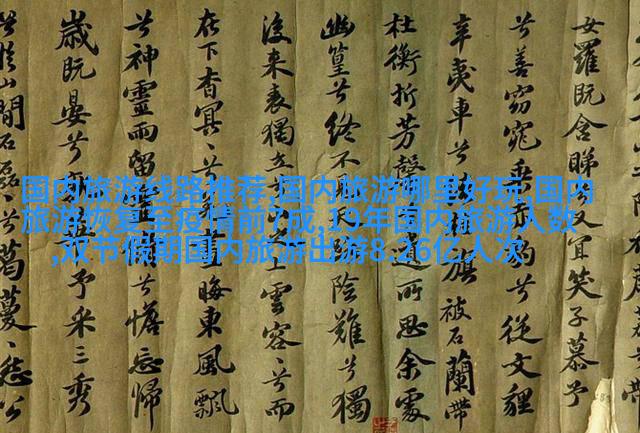 国内旅游线路推荐,国内旅游哪里好玩,国内
旅游恢复至疫情前7成,19年国内旅游人数
,双节假期国内旅游出游8.26亿人次
女羅既含睇又宜笑子慕予
兮善窈窕乘兮從文貍
辛夷車兮旗被石蘭帶
杜衡折芳馨所思余處
幽篁兮終不天險難兮獨
後来表獨立上雲容容兮而
在下杳冥冥晦東風飄
兮神靈雨留兮憺忘歸
歲既晏兮予采三秀
於山間石磊磊葛蔓蔓怨公